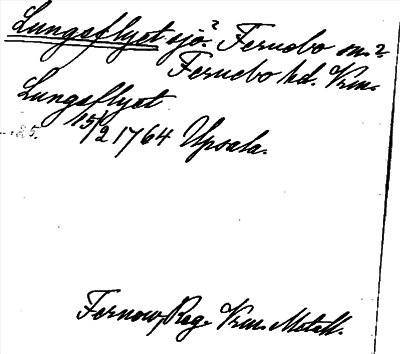 Lungsflyet sjö? Fernebo sn.?
Fernebo hd. Vrm.
Lungsflyet
15/2 1764 Upsala.
Fernow, Reg. Vrm. Metall.